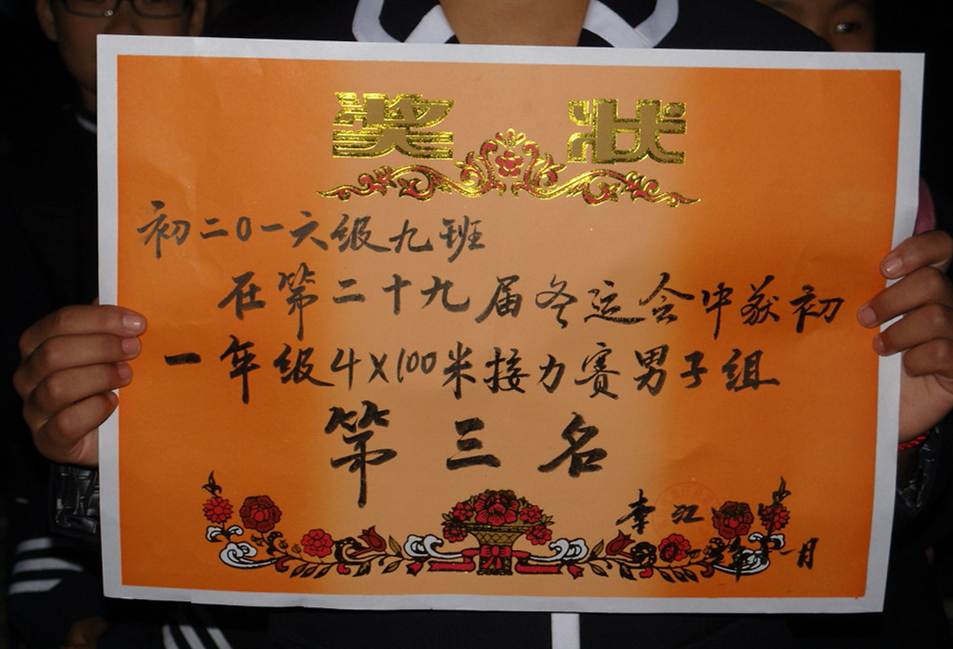 奖状
初二〇一六级九班
在第二十九届冬运会中获初
一年级4X100米接力赛男子组
第三名
江
年十一月